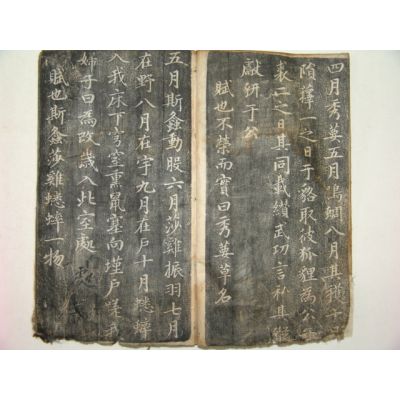 四月秀葽五月鳴蜩八月其穫十
隕蘀一之日于貉取彼狐貍為公子
裘二之日其同載纘武功言私其豵
獻豜于公
賦也不榮而實曰秀葽草名
五月斯螽動股六月莎雞振羽七月
在野八月在宇九月在戶十月蟋蟀
入我床下穹窒熏鼠塞向墐戶嗟我
婦子曰為改歲入此室處
賦也斯螽莎雞蟋蟀一物